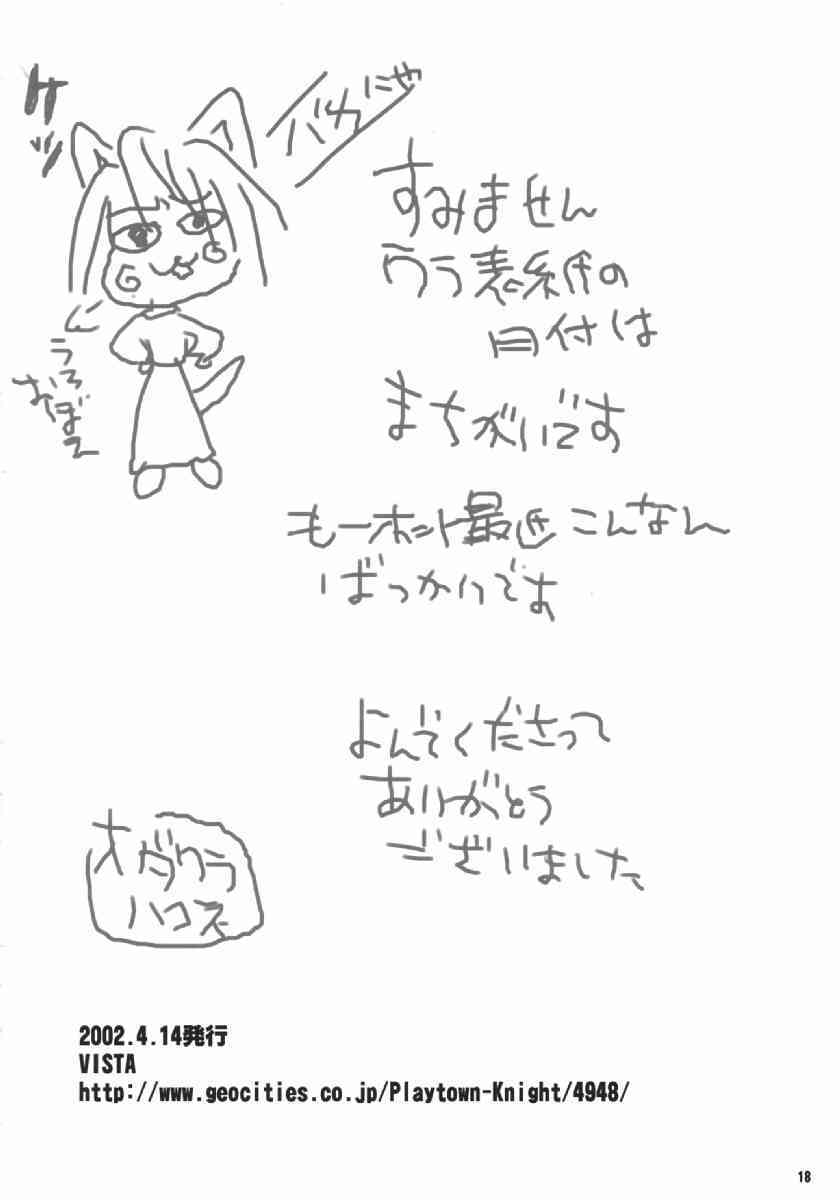 ケッ
バカにゃ
すみません
ウラ表紙の
日付は
まちがいです
もーホント最近こんなん
ばっかりです
うろ
おぼえ
よんでくださって
ありがとう
ございました
オダワラ
ハコネ
2002.4.14発行
VISTA
http://www.geocities.co.jp/Playtown-Knight/4948/
18